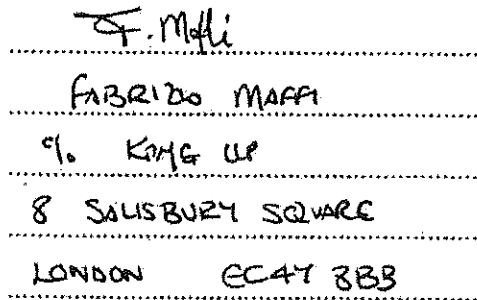 F. Maffi
FABRIZIO MAFFI
℅ KPMG LLP
8 SALISBURY SQUARE
LONDON EC4Y 8BB